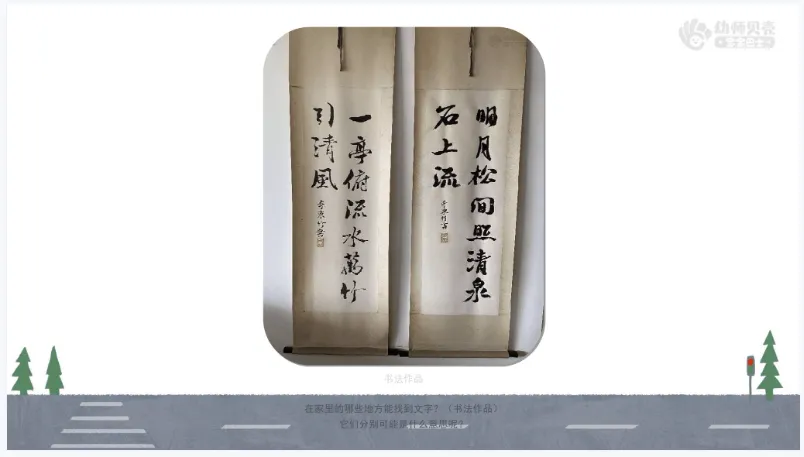 幼师贝壳
明月松间照清泉
石上流
一亭俯流水萬竹
引清風
书法作品
在家里的哪些地方能找到文字？（书法作品）
它们分别可能是什么意思呢？